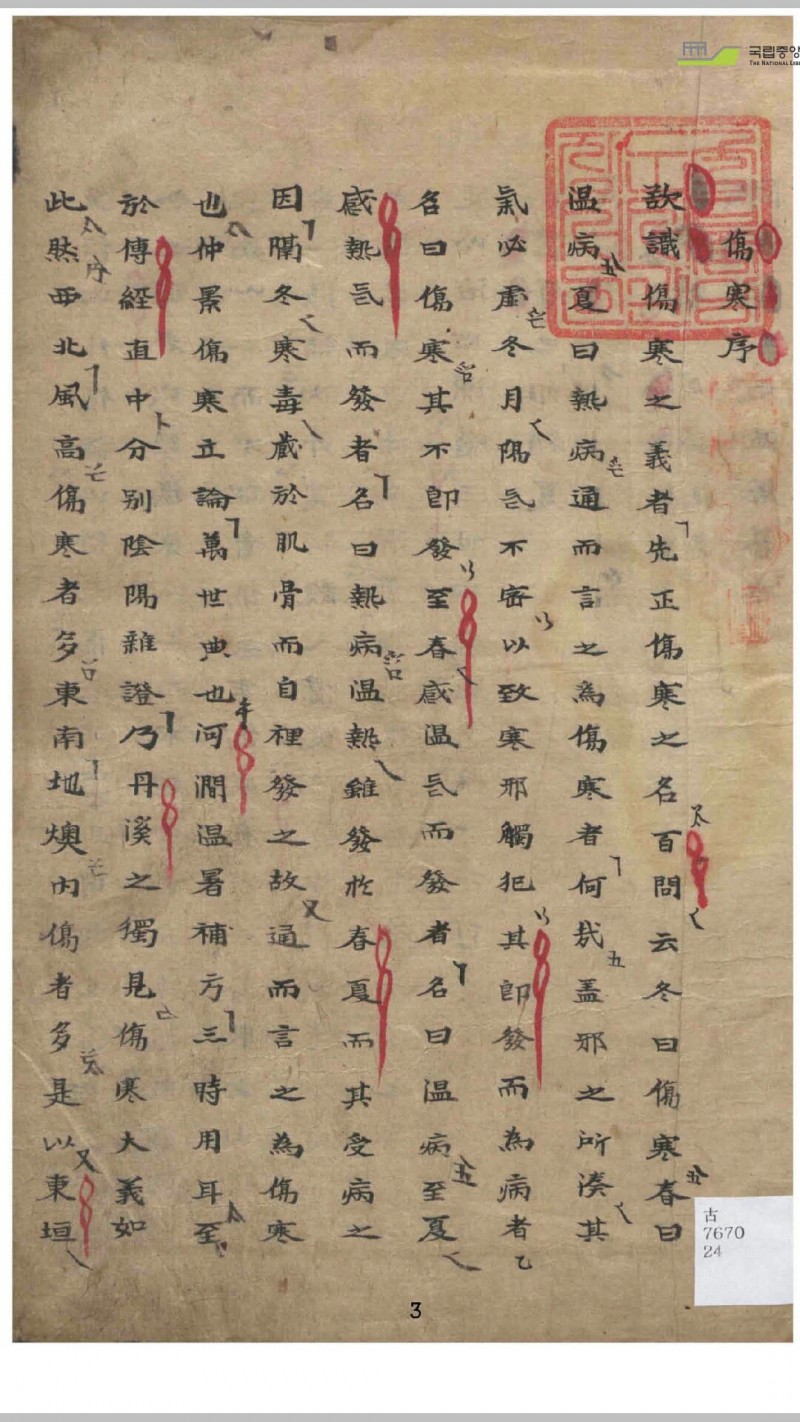 傷寒序
欲識傷寒之義者先正傷寒之名百問云冬曰傷寒春曰
温病夏曰熱病通而言之為傷寒者何㢤盖邪之所湊其
氣必虛冬月陽气不密以致寒邪觸犯其即發而為病者
名曰傷寒其不即發至春感温气而發者名曰温病至夏
感熱气而發者名曰熱病温熱雖發於春夏而其受病之
因隔冬寒毒蔵於肌骨而自裡發之故通而言之為傷寒
也仲景傷寒立論萬世典也河澗温暑補方三時用耳至
於傳經直中分別陰陽雜證乃丹溪之獨見傷寒大義如
此然西北風高傷寒者多東南地燠内傷者多是以東垣
국립중앙
THE NATIONAL LIB
古
7670
24
3